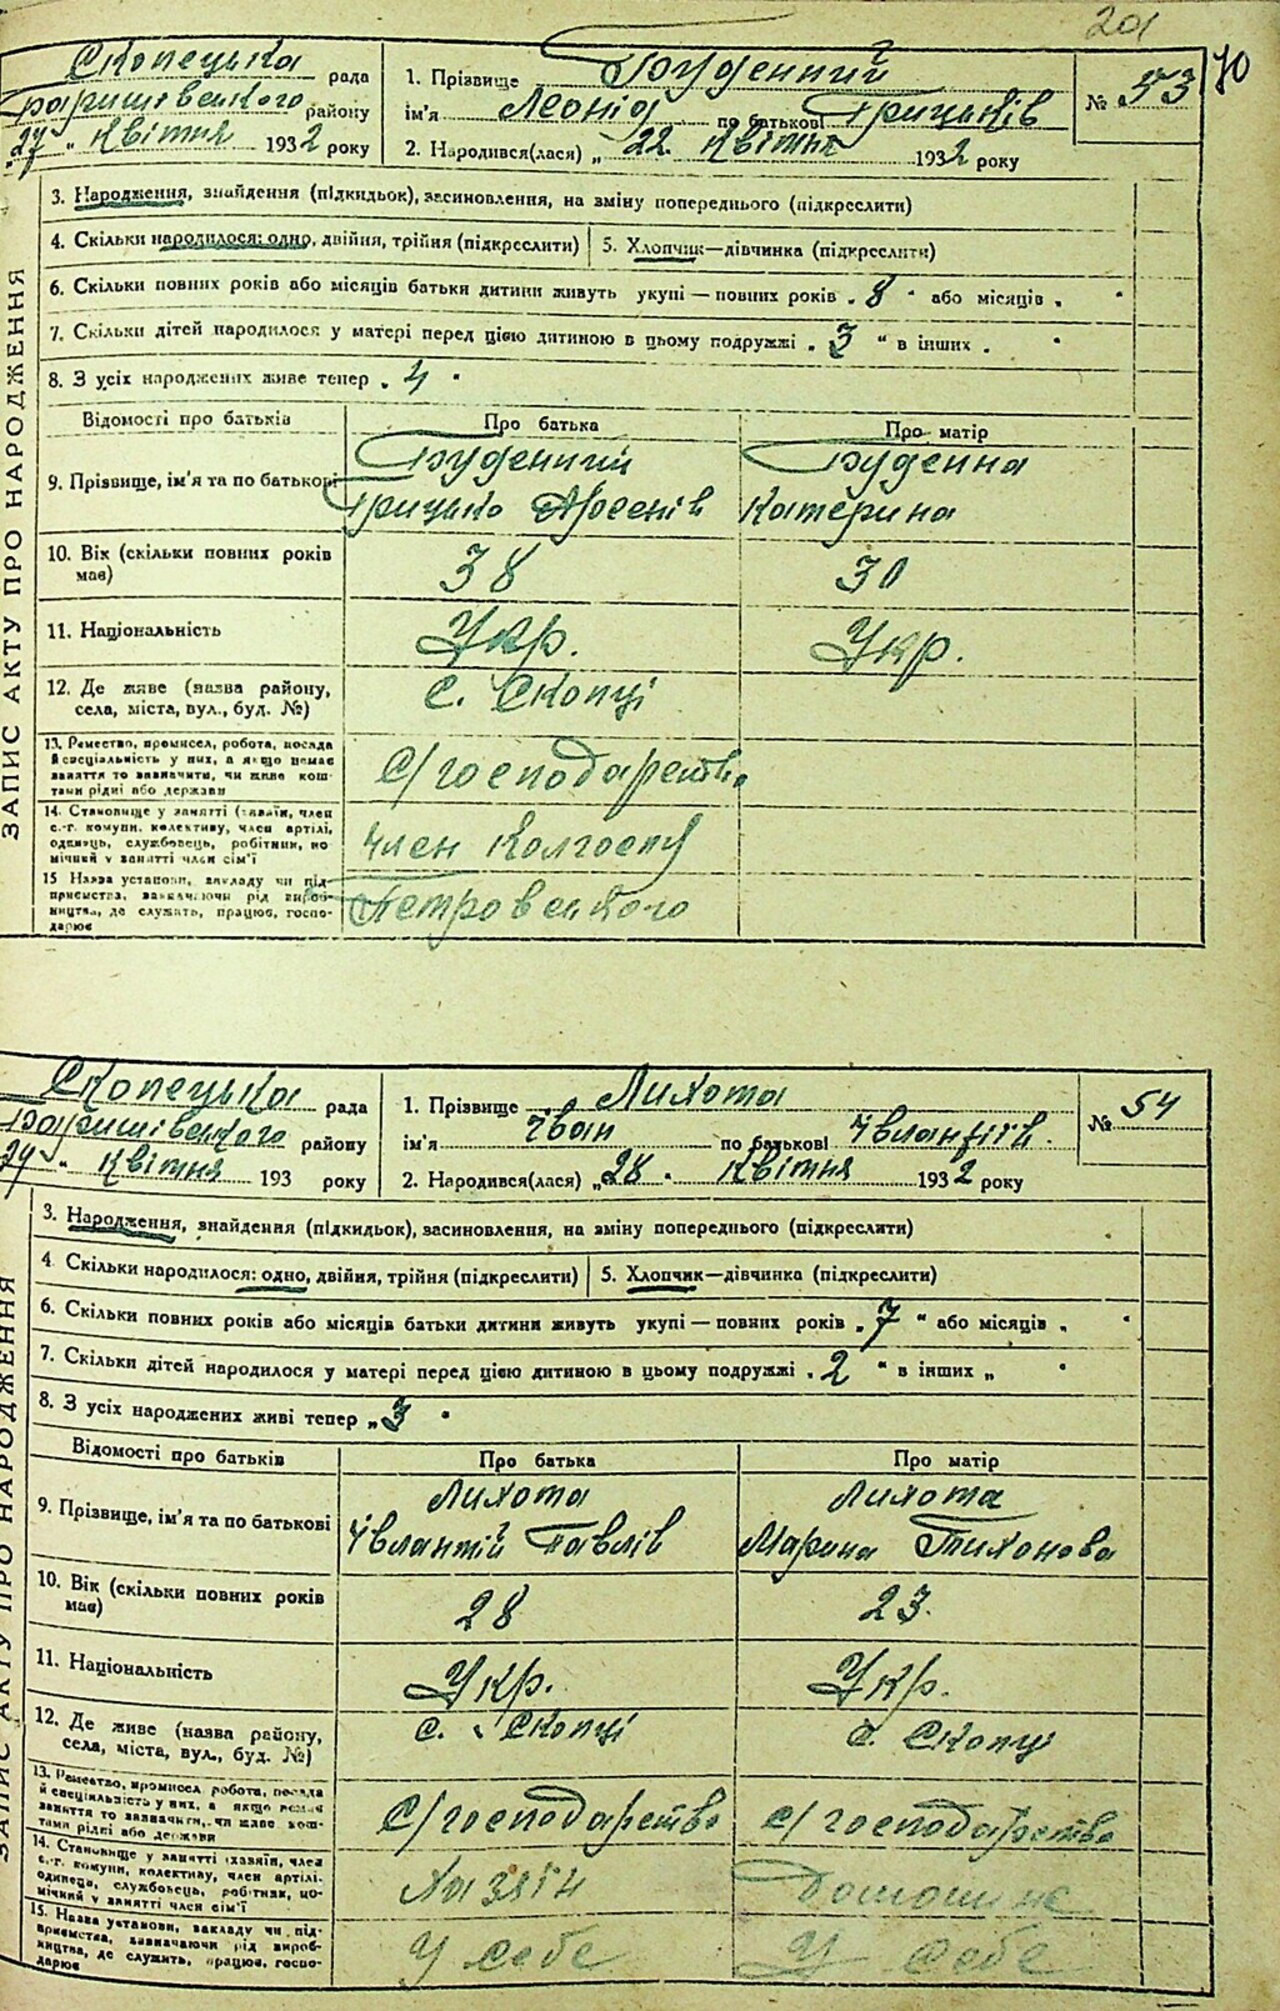 201
70
Скопецька рада
Баришівського району
„27“ квітня 1932 року
1. Прізвище Буденний
ім'я Леонід по батькові Грицьків
2. Народився(лася) „22. квітня 1932 року
№ 53
ЗАПИС АКТУ ПРО НАРОДЖЕННЯ
3. Народження, знайдення (підкидьок), засиновлення, на зміну попереднього (підкреслити)
4. Скільки народилося: одно, двійня, трійня (підкреслити) 5. Хлопчик—дівчинка (підкреслити)
6. Скільки повних років або місяців батьки дитини живуть укупі — повних років „8“ або місяців „ “
7. Скільки дітей народилося у матері перед цією дитиною в цьому подружжі „3“ в інших „ “
8. З усіх народжених живе тепер „4“
Відомості про батьків Про батька Про матір
9. Прізвище, ім'я та по батькові
Буденний Буденна
Грицько Арсенів Катерина
10. Вік (скільки повних років має) 38 30
11. Національність Укр. Укр.
12. Де живе (назва району, с. Скопці
села, міста, вул., буд. №)
13. Ремество, промисел, робота, посада
й спеціальність у них, а якщо немає С/господарство
заняття то зазначити, чи живе кош-
тами рідні або держави
14. Становище у занятті (хазяїн, член
с.-г. комуни, колективу, член артілі, член колгоспу
одинець, службовець, робітник, по
мічний у занятті член сім'ї
15 Назва установи, закладу чи під-
приємства, зазначаючи рід вироб- Петровського
ництва, де служить, працює, госпо-
дарює
Скопецька рада
Баришівського району
квітня 193 року
1. Прізвище Лихота
ім'я Іван по батькові Івлантіїв.
2. Народився(лася) „28“ квітня 1932 року
№ 54
ЗАПИС АКТУ ПРО НАРОДЖЕННЯ
3. Народження, знайдення (підкидьок), засиновлення, на зміну попереднього (підкреслити)
4 Скільки народилося: одно, двійня, трійня (підкреслити) 5. Хлопчик—дівчинка (підкреслити)
6. Скільки повних років або місяців батьки дитини живуть укупі — повних років „7“ або місяців „ “
7. Скільки дітей народилося у матері перед цією дитиною в цьому подружжі „2“ в інших „ “
8. З усіх народжених живі тепер „3“
Відомості про батьків Про батька Про матір
9. Прізвище, ім'я та по батькові
Лихота Лихота
Івлантій Павлів Марина Тихонова
10. Вік (скільки повних років має) 28 23.
11. Національність Укр. Укр.
12. Де живе (назва району, с. Скопці с. Скопці
села, міста, вул., буд. №)
13. Ремество, промисел робота, посада
й спеціальність у них, а якщо немає С/господарство с/господарство
заняття то зазначити, чи живе кош-
тами рідні або держави
14. Становище у занятті (хазяїн, член
с.-г. комуни, колективу, член артілі, Хазяїн
одинець, службовець, робітник, по-
мічний у занятті член сім'ї
15. Назва установи, закладу чи під-
приємства, зазначаючи рід вироб- У себе У себе
ництва, де служить, працює, госпо-
дарює